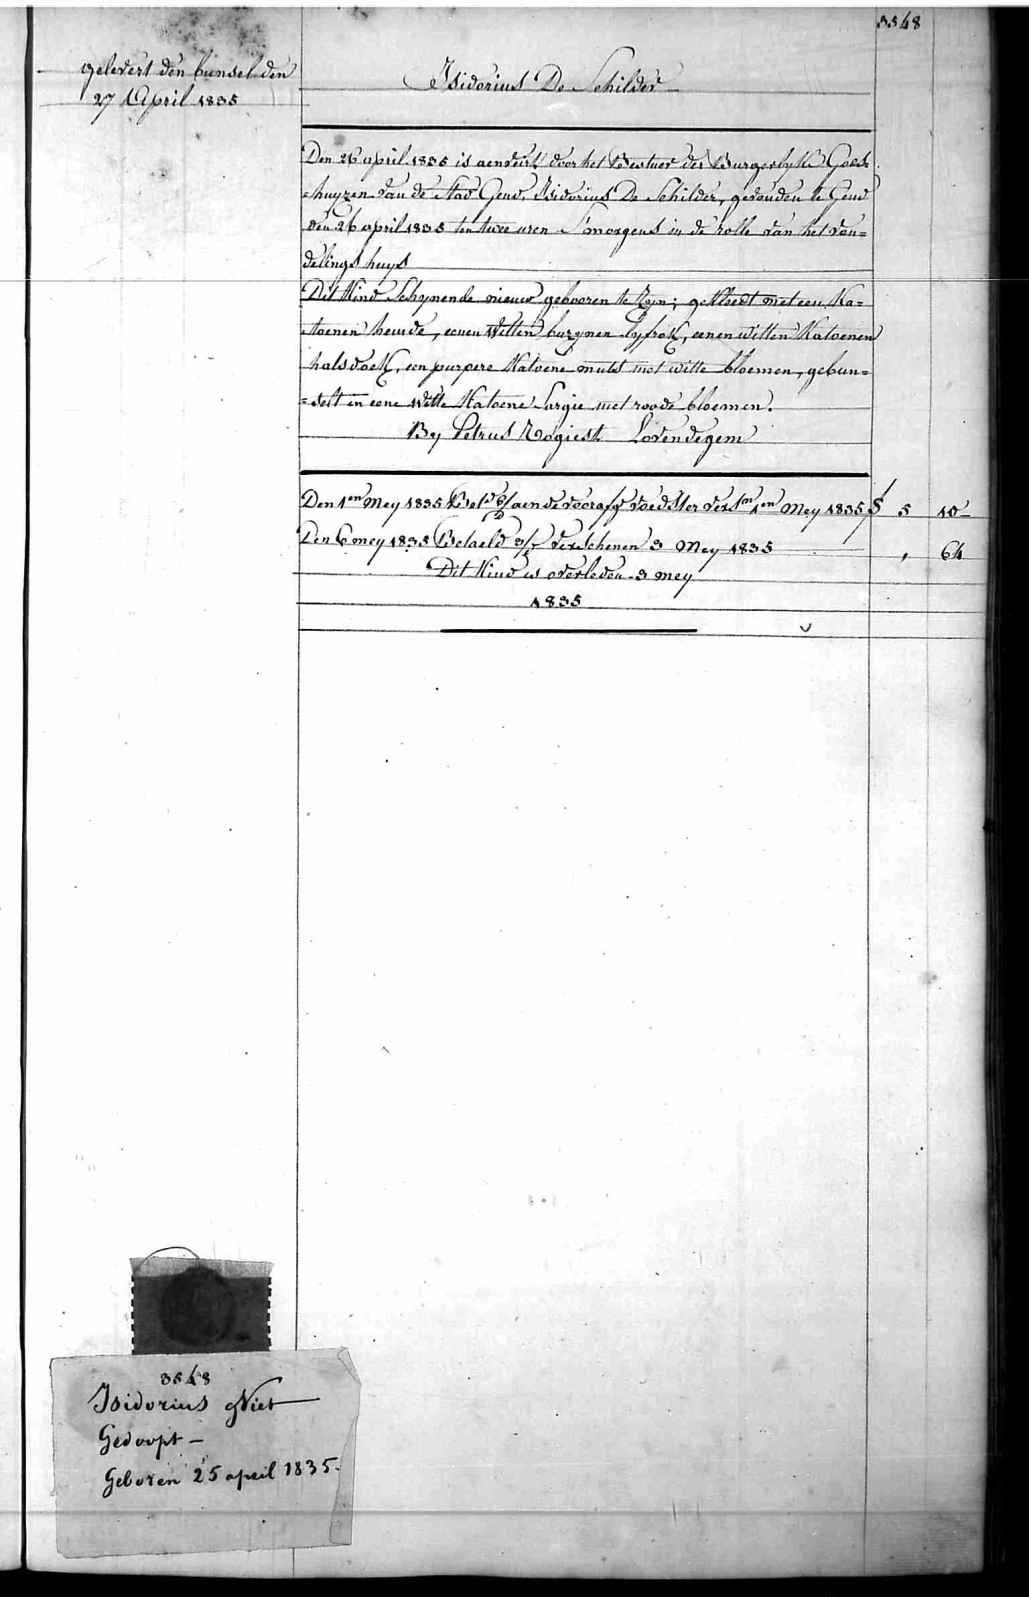 3548
gelevert den bunsel den
27 April 1835
Isidorius De Schilder
Den 26 april 1835 is aenveirt door het Bestuer der Burgerlyke Gods=
=huyzen van de Stad Gend, Isidorius De Schilder, gevonden te Gend
den 26 april 1835 ten twee uren S'morgens in de rolle van het von=
delings huys
Dit Kind Schynende nieuw gebooren te Zyn; gekleedt met een Ka=
=toenen hemde, eenen Witten bazynen lyfrok, eenen witten Katoenen
halsdoek, een purpere Katoene muts met witte bloemen, gebun=
=selt in eene Witte Katoene Sargie met roode bloemen.
By Petrus Rogiest Lovendegem
Den 1en Mey 1835 aen de voedster 1en Mey 1835 5 10
Den 6 mey 1835 Betaeld verschenen 3 Mey 1835 " 64
Dit Kind is overleden 3 mey
1835
3548
Isidorius Niet
Gedoopt -
Geboren 25 april 1835.